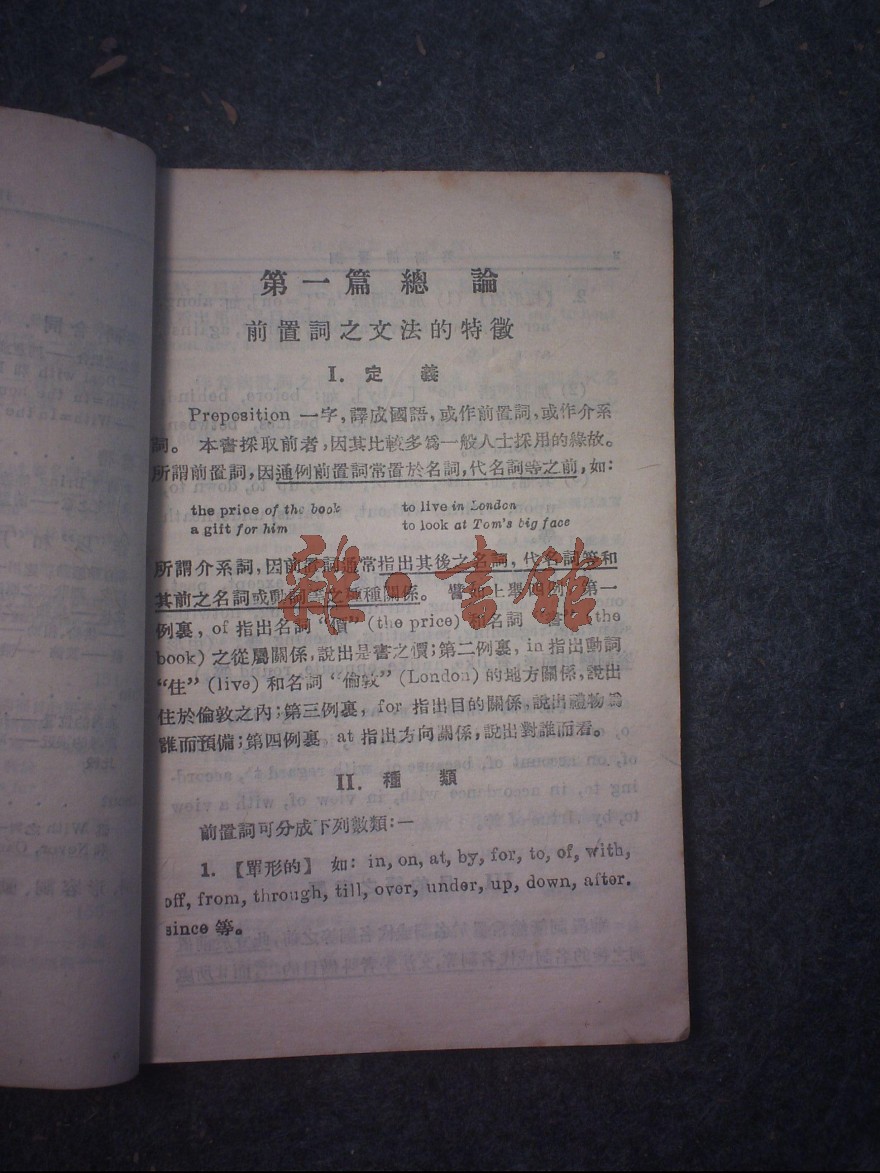 第一篇 總 論
前置詞之文法的特徵
I. 定 義
Preposition 一字，譯成國語，或作前置詞，或作介系
詞。 本書採取前者，因其比較多爲一般人士採用的緣故。
所謂前置詞，因通例前置詞常置於名詞，代名詞等之前，如：
the price of the book to live in London
a gift for him to look at Tom's big face
所謂介系詞，因前置詞通常指出其後之名詞，代名詞等和
其前之名詞或動詞等之種種關係。 譬如上舉四例，第一
例裏，of 指出名詞 “價” (the price) 和名詞 “書” (the
book) 之從屬關係，說出是書之價；第二例裏，in 指出動詞
“住” (live) 和名詞 “倫敦” (London) 的地方關係，說出
住於倫敦之內；第三例裏，for 指出目的關係，說出禮物爲
誰而預備；第四例裏 at 指出方向關係，說出對誰而看。
II. 種 類
前置詞可分成下列數類：—
1. 【單形的】 如：in, on, at, by, for, to, of, with,
off, from, through, till, over, under, up, down, after.
since 等。
雜·書館